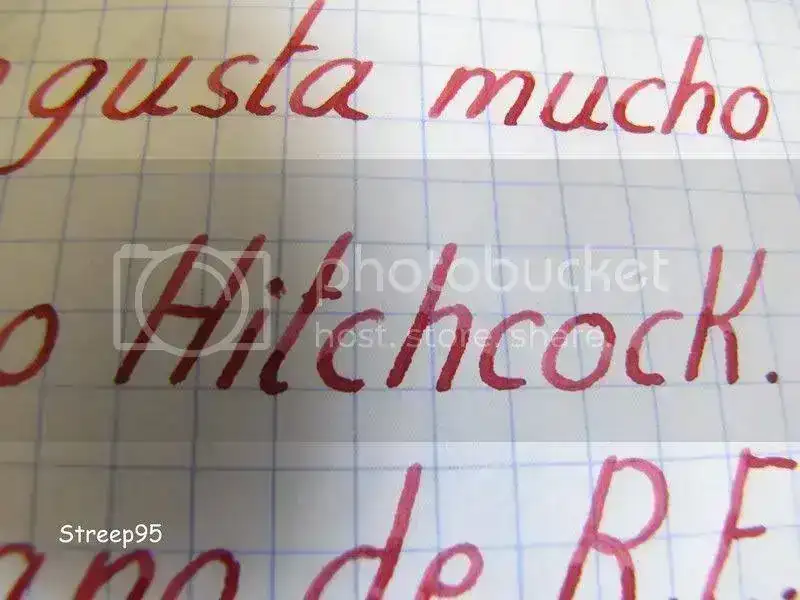 gusta mucho
o Hitchcock.
photobucket
host. store. share.
Streep95
ano de R.E.